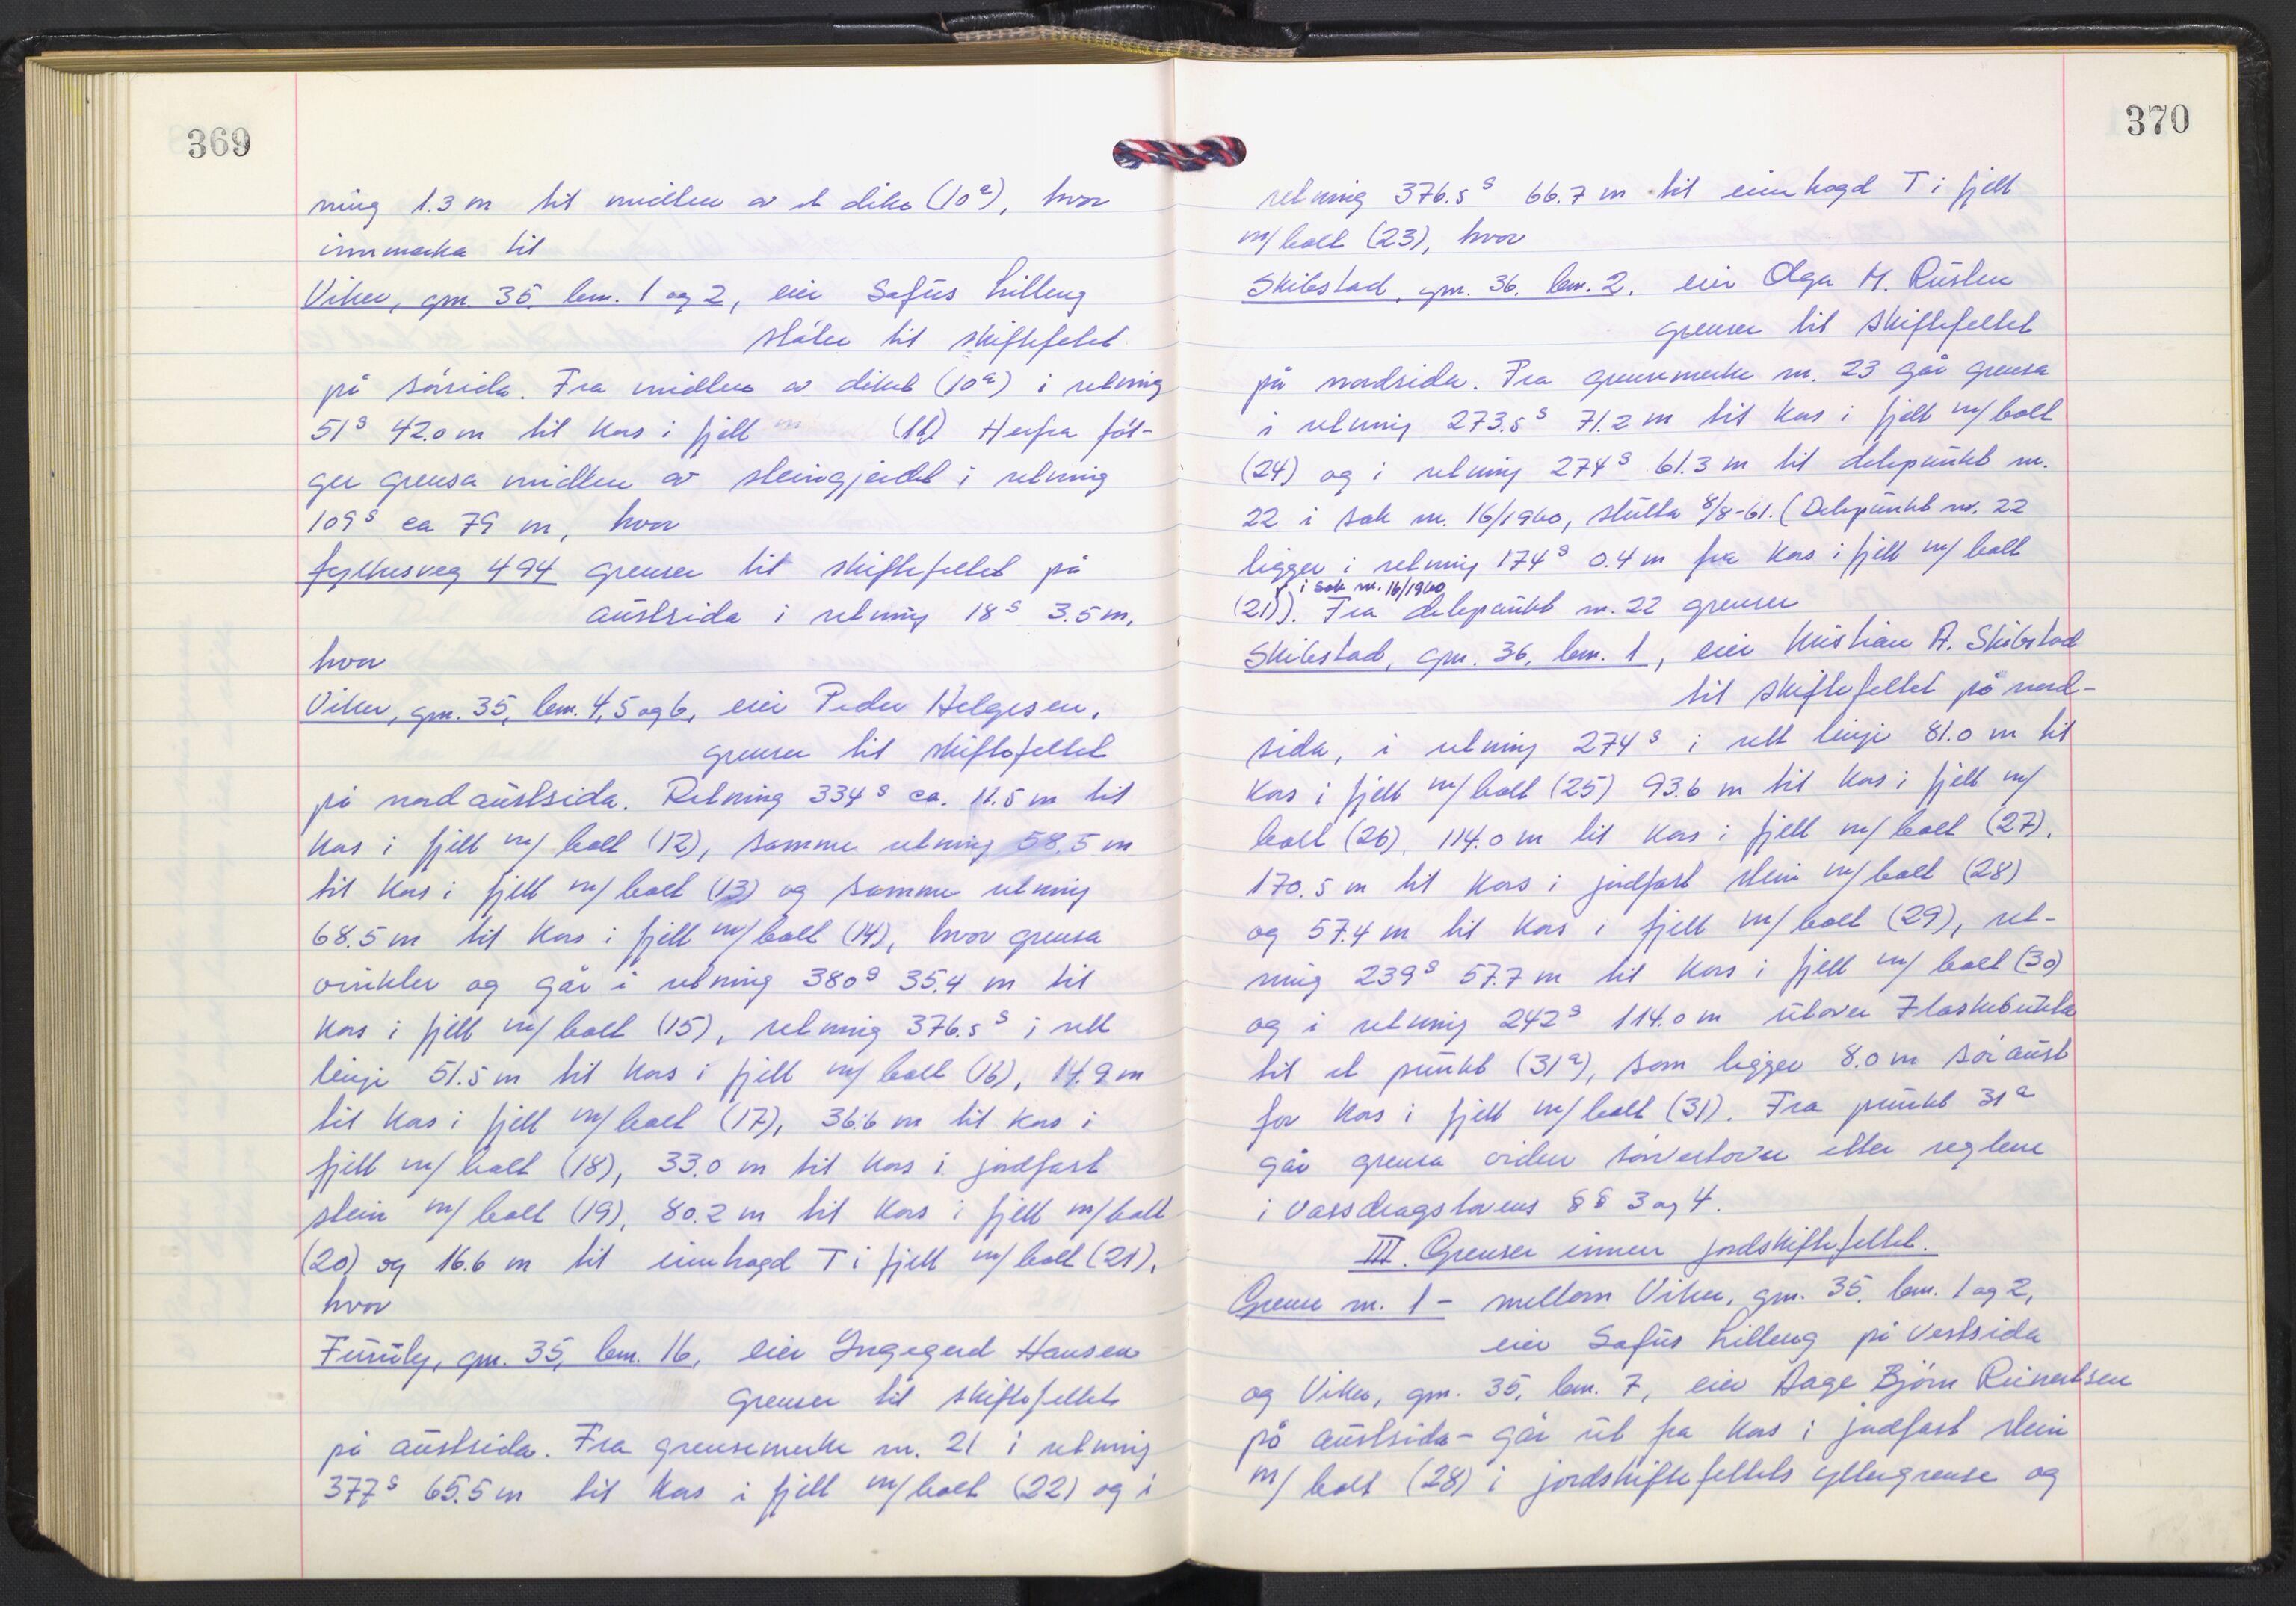 369
ning 1.3 m til midten av et dike (10a), hvor
innmarka til
Viker, gnr. 35, bnr. 1 og 2, eier Sofus Lilleng
støter til skiftefeltet
på sørsida. Fra midten av diket (10a) i retning
51g 42.0 m til kors i fjell m (11) Herfra føl-
ger grensa midten av steingjerdet i retning
109g ca 79 m, hvor
fylkesveg 494 grenser til skiftefeltet på
austsida i retning 18g 3.5 m,
hvor
Viker, gnr. 35, bnr. 4, 5 og 6, eier Peder Helgesen,
grenser til skiftefeltet
på nordaustsida. Retning 334g ca. 11.5 m til
kors i fjell m/ bolt (12), samme retning 58.5 m
til kors i fjell m/ bolt (13) og samme retning
68.5 m til kors i fjell m/ bolt (14), hvor grensa
vinkler og går i retning 380g 35.4 m til
kors i fjell m/ bolt (15), retning 376.5g i rett
linje 51.5 m til kors i fjell m/ bolt (16), 14.9 m
til kors i fjell m/ bolt (17), 36.6 m til kors i
fjell m/ bolt (18), 33.0 m til kors i jordfast
stein m/ bolt (19), 80.2 m til kors i fjell m/ bolt
(20) og 16.6 m til innhogd T i fjell m/ bolt (21),
hvor
Furuly, gnr. 35, bnr. 16, eier Ingegerd Hansen
grenser til skiftefeltet
på austsida. Fra grensemerke nr. 21 i retning
377g 65.5 m til kors i fjell m/ bolt (22) og i
370
retning 376.5g 66.7 m til innhogd T i fjell
m/ bolt (23), hvor
Skibstad, gnr. 36, bnr. 2, eier Olga M. Rusten
grenser til skiftefeltet
på nordsida. Fra grensemerke nr. 23 går grensa
i retning 273.5g 71.2 m til kors i fjell m/ bolt
(24) og i retning 274g 61.3 m til delepunkt nr.
22 i sak nr. 16/1960, slutta 8/8-61. (Delepunkt nr. 22
ligger i retning 174g 0.4 m fra kors i fjell m/ bolt
i sak nr. 16/1960
(21)). Fra delepunkt nr. 22 grenser
Skibstad, gnr. 36, bnr. 1, eier Kristian A. Skibstad
til skiftefeltet på nord-
sida, i retning 274g i rett linje 81.0 m til
kors i fjell m/ bolt (25) 93.6 m til kors i fjell m/
bolt (26), 114.0 m til kors i fjell m/ bolt (27),
170.5 m til kors i jordfast stein m/ bolt (28)
og 57.4 m til kors i fjell m/ bolt (29), ret-
ning 239g 57.7 m til kors i fjell m/ bolt (30)
og i retning 242g 114.0 m utover Flaskebukta
til et punkt (31a), som ligger 8.0 m søraust
for kors i fjell m/ bolt (31). Fra punkt 31a
går grensa videre sørvestover etter reglene
i vassdragslovens §§ 3 og 4.
III. Grenser innen jordskiftefeltet.
Grense nr. 1 - mellom Viker, gnr. 35, bnr. 1 og 2,
eier Sofus Lilleng på vestsida
og Viker, gnr. 35, bnr. 7, eier Aage Bjørn Reinertsen
på austsida - går ut fra kors i jordfast stein
m/ bolt (28) i jordskiftefeltets yttergrense og